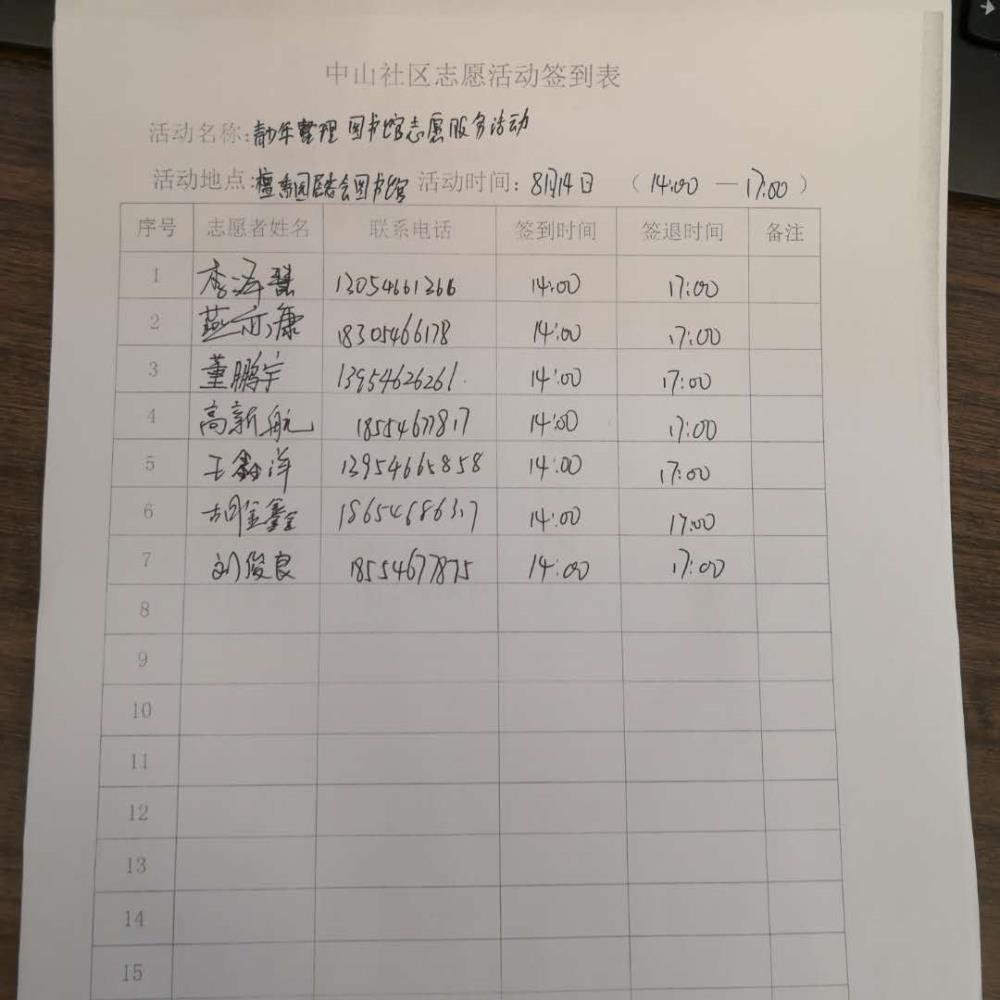 中山社区志愿活动签到表
活动名称:青少年整理图书馆志愿服务活动
活动地点:檀香园居委会图书馆 活动时间:8月14日 (14:00 — 17:00)
序号 志愿者姓名 联系电话 签到时间 签退时间 备注
1 李海慧 13054661366 14:00 17:00
2 燕亦康 18305466178 14:00 17:00
3 董鹏宇 13954626261. 14:00 17:00
4 高新航 18554677817 14:00 17:00
5 王鑫洋 13954665858 14:00 17:00
6 胡金鑫 18654686317 14:00 17:00
7 刘俊良 18554677875 14:00 17:00
8
9
10
11
12
13
14
15